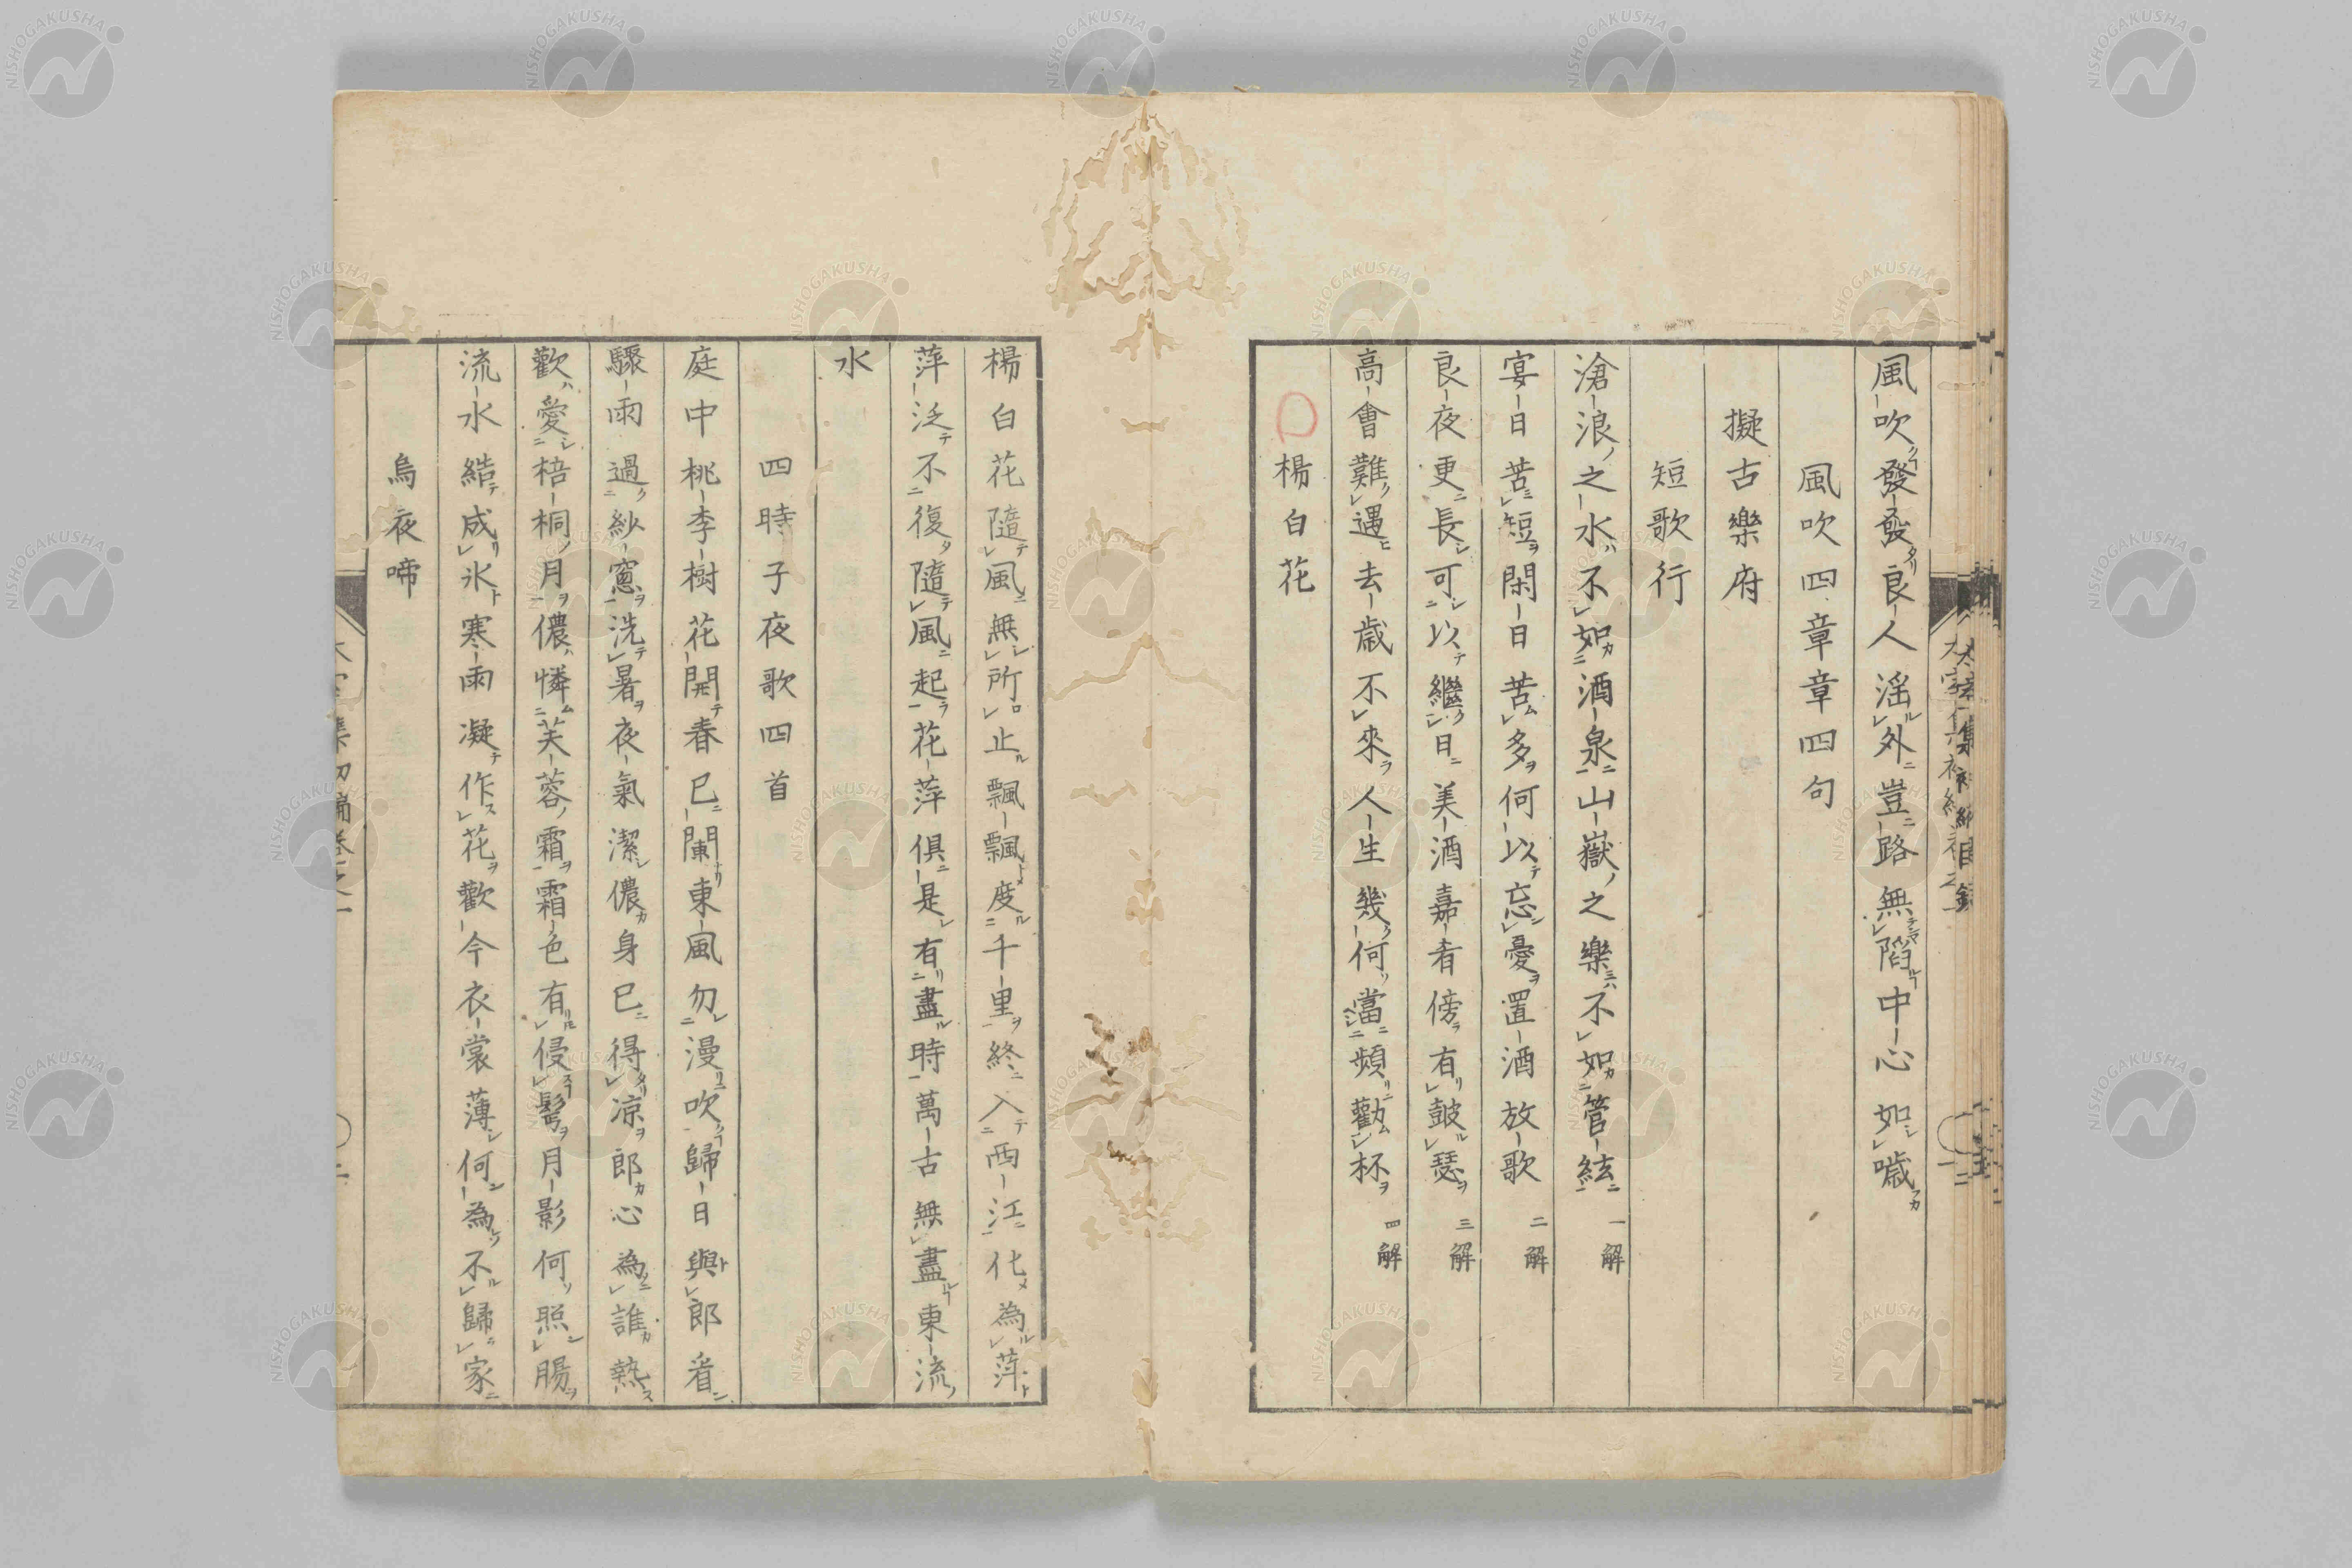 風吹發發良人淫外豈路無陷中心如噦
風吹四章章四句
擬古樂府
短歌行
滄浪之水不如酒泉山嶽之樂不如管絃 一解
宴日苦短閑日苦多何以忘憂置酒放歌 二解
良夜更長可以繼日美酒嘉肴傍有鼓瑟 三解
高會難遇去歲不來人生幾何當頻勸杯 四解
楊白花
楊白花隨風無所止飄飄度千里終入西江化為萍
萍泛不復隨風起花萍俱是有盡時萬古無盡東流
水
四時子夜歌四首
庭中桃李樹花開春已闌東風勿漫吹歸日與郎看
驟雨過紗窓洗暑夜氣潔儂身已得凉郎心為誰熱
歡愛梧桐月儂憐芙蓉霜霜色有侵鬢月影何照腸
流水結成氷寒雨凝作花歡今衣裳薄何為不歸家
烏夜啼
NISHOGAKUSHA